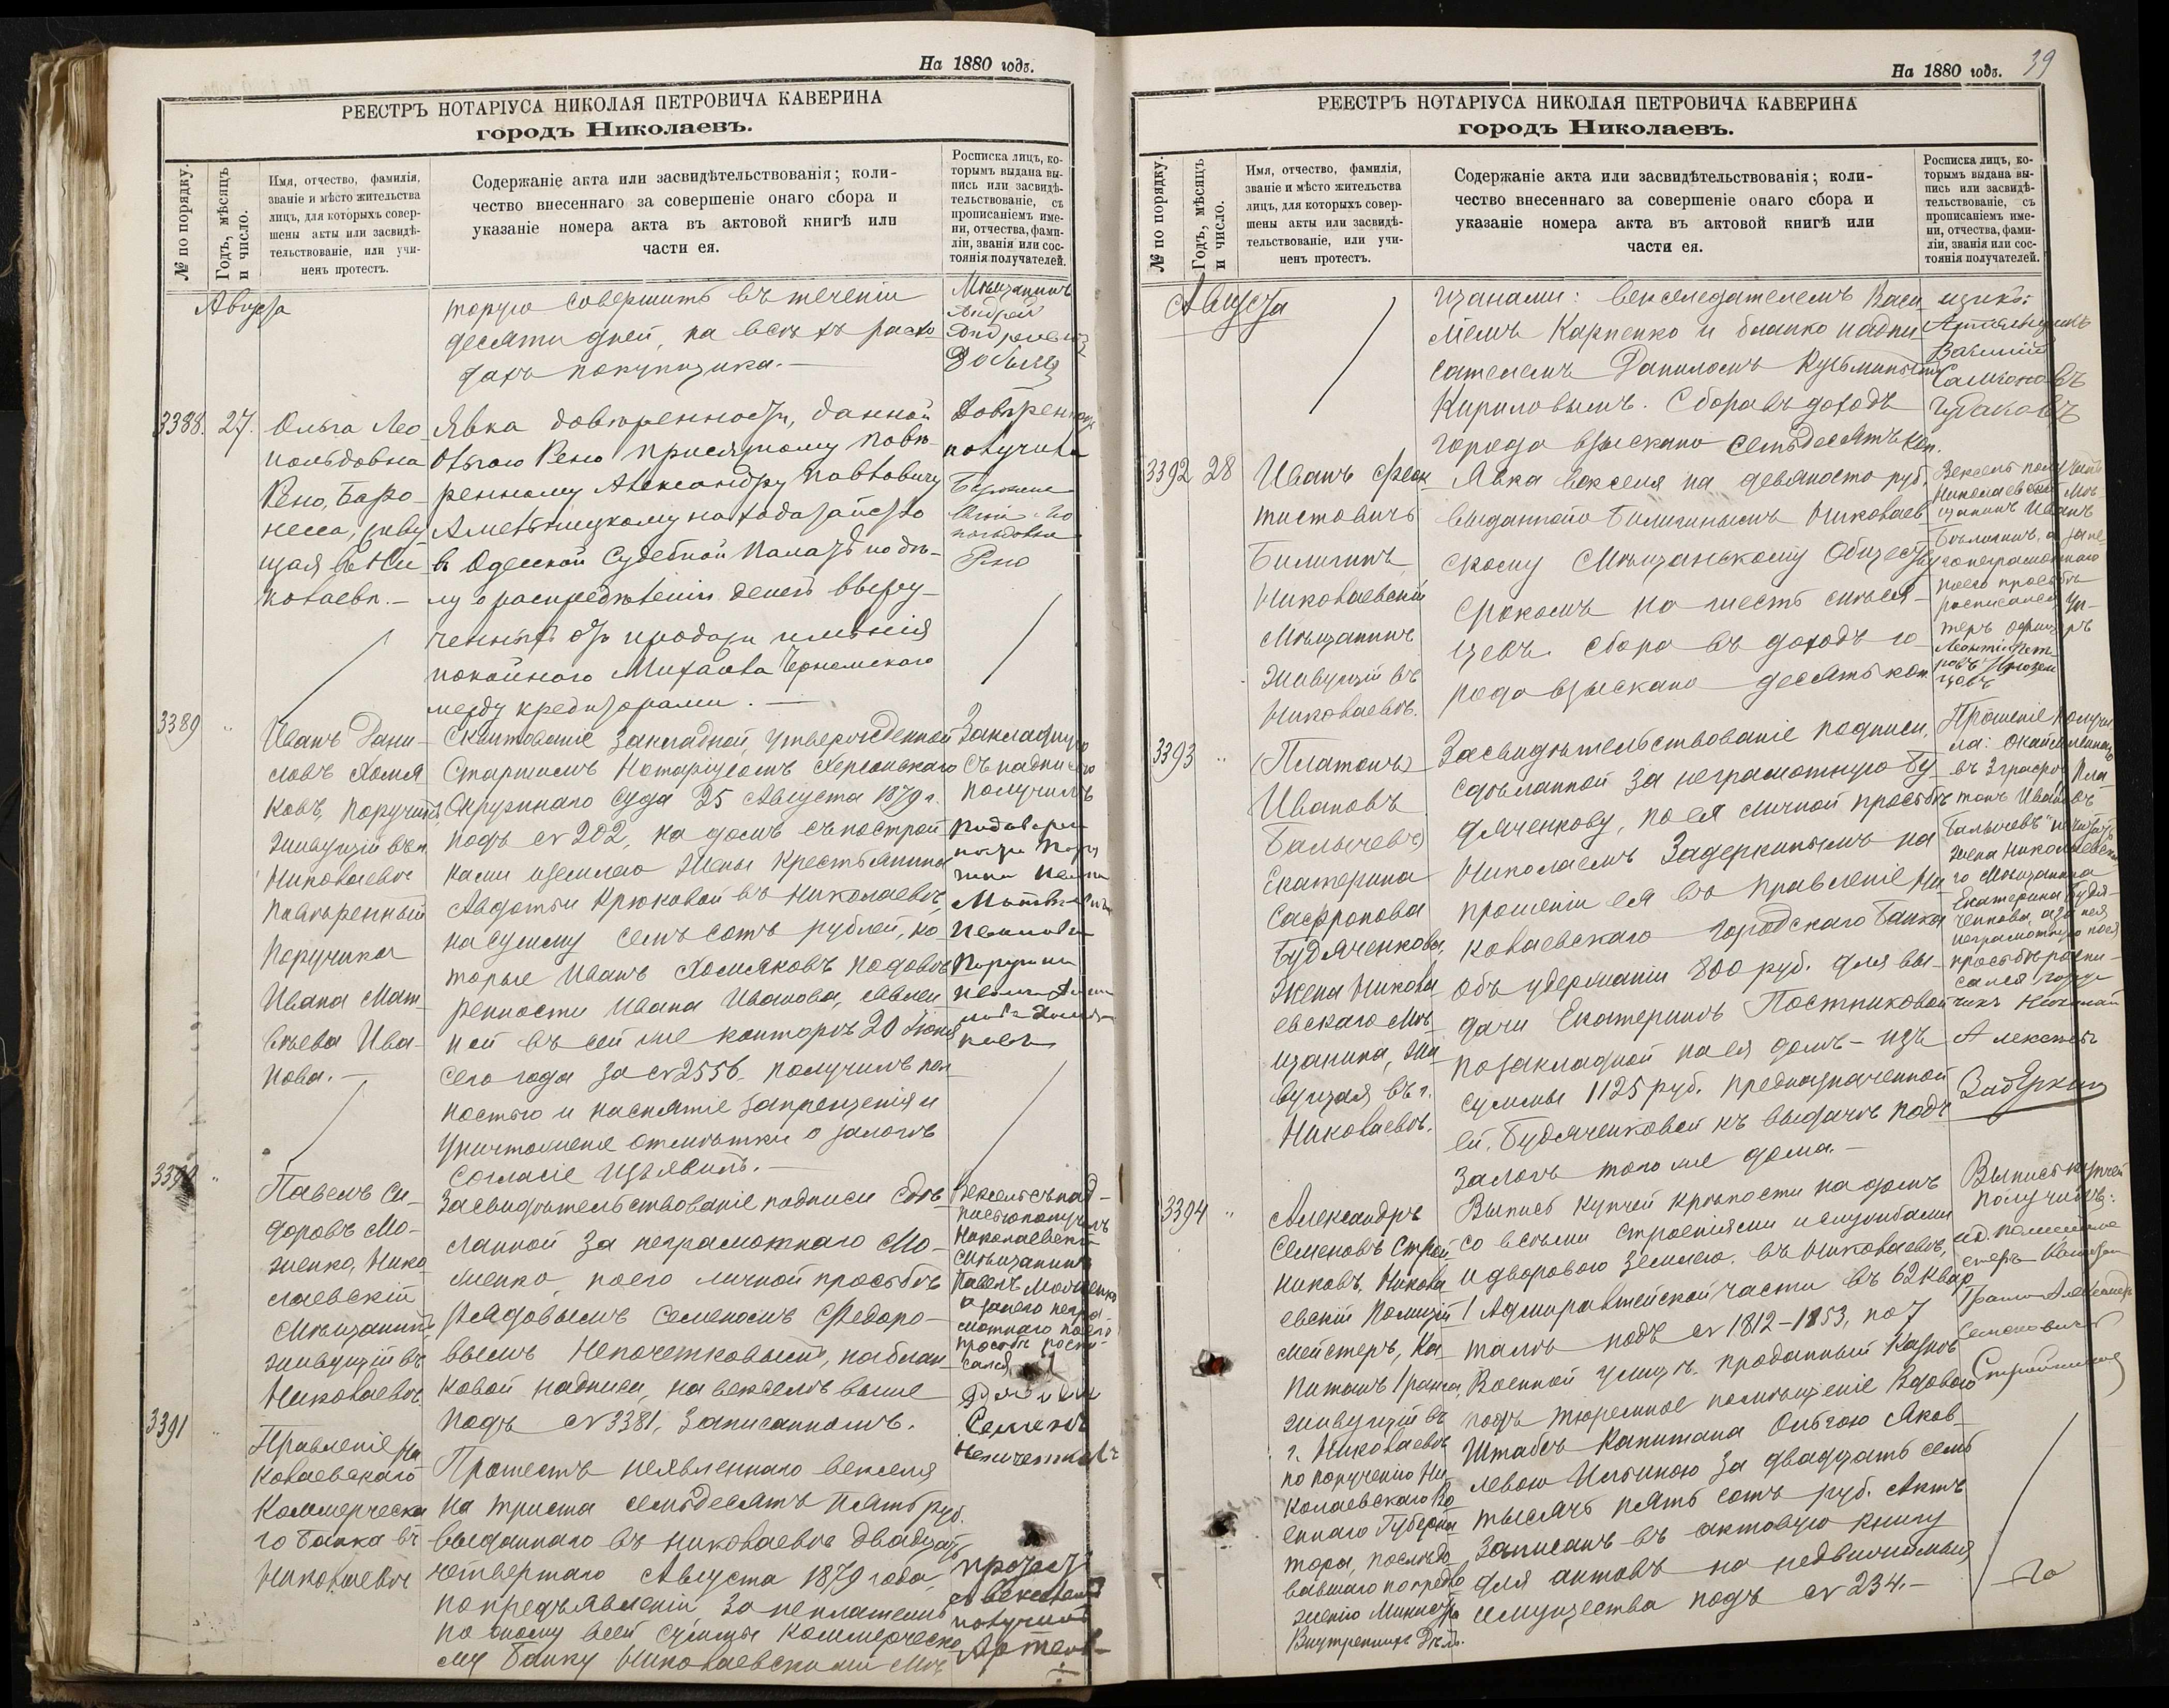 На 1880 годъ.
РЕЕСТРЪ НОТАРІУСА НИКОЛАЯ ПЕТРОВИЧА КАВЕРИНА
городъ Николаевъ.
№ по порядку.
Годъ, мѣсяцъ
и число.
Имя, отчество, фамилія,
званіе и мѣсто жительства
лицъ, для которыхъ совер-
шены акты или засвидѣ-
тельствованіе, или учи-
ненъ протестъ.
Содержаніе акта или засвидѣтельствованія; коли-
чество внесеннаго за совершеніе онаго сбора и
указаніе номера акта въ актовой книгѣ или
части ея.
Росписка лицъ, ко-
торымъ выдана вы-
пись или засвидѣ-
тельствованіе, съ
прописаніемъ име-
ни, отчества, фами-
ліи, званія или сос-
тоянія получателей.
Августа
торую совершить въ теченіи
десяти дней, на всѣхъ расхо-
дахъ покупщика.—
Мѣщанинъ
Андрей
Андреевъ
3388. 27.
Ольга Лео-
польдовна
Рено, Баро-
несса, живу
щая въ Ни-
колаевѣ.—
Явка довѣренности, данной
Ольгою Рено присяжному повѣ-
ренному Александру Павловичу
на ходатайство
въ Одесской Судебной Палатѣ по дѣ-
лу о распредѣленіи денегъ выру-
ченныхъ отъ продажи имѣнія
покойнаго Михаила
между кредиторами.—
Довѣренность
получила
Баронесса
Рено
3389 "
Иванъ Дани-
ловъ Хомя
ковъ, поручикъ
живущій въ г.
Николаевѣ
повѣренный
Поручика
Ивана Мат-
вѣева Ива-
нова.—
Сквитованіе закладной, утвержденной
Старшимъ Нотаріусомъ Херсонскаго
Окружнаго Суда 25 Августа 1879 г.
подъ № 202, на домъ съ построй-
ками и землею жены крестьянина
Авдотьи Крюковой въ Николаевѣ,
на сумму семьсотъ рублей, ко-
торые Иванъ Хомяковъ по довѣ-
ренности Ивана Иванова, явлен-
ной въ сей же конторѣ 20 Іюня
сего года за № 2556 получилъ пол-
ностью и на снятіе запрещенія и
уничтоженіе отмѣтки о залогѣ
согласіе изъявилъ.—
Закладную
съ надписью
получилъ
по довѣрен
ности
3390 "
Павелъ Си-
доровъ Мо-
женко, Нико
лаевскій
Мѣщанинъ,
живущій въ
Николаевѣ.
Засвидѣтельствованіе подписи сдѣ-
ланной за неграмотнаго Мо-
женко, по его личной просьбѣ
рядовымъ Семеномъ Федоро-
вымъ Непочетковымъ, по блан
ковой надписи, на векселѣ выше
подъ № 3381, записанномъ.
Вексель съ над-
писью получилъ
Николаевскій
Мѣщанинъ
Павелъ Моженко
а за него негра
мотнаго по его
просьбѣ роспи-
сался
рядовой
Семенъ
3391 "
Правленіе Ни
колаевскаго
Коммерческа
го банка въ
Николаевѣ
Протестъ неявленнаго векселя
на триста семьдесятъ пять руб.
выданнаго въ Николаевѣ двадцать
четвертаго Августа 1879 года,
по предъявленіи за неплатежъ
по оному всей суммы Коммерческо
му Банку Николаевскими Мѣ
протестъ
съ векселемъ
получилъ
Артель-
На 1880 годъ. 39
РЕЕСТРЪ НОТАРІУСА НИКОЛАЯ ПЕТРОВИЧА КАВЕРИНА
городъ Николаевъ.
№ по порядку.
Годъ, мѣсяцъ
и число.
Имя, отчество, фамилія,
званіе и мѣсто жительства
лицъ, для которыхъ совер-
шены акты или засвидѣ-
тельствованіе, или учи-
ненъ протестъ.
Содержаніе акта или засвидѣтельствованія; коли-
чество внесеннаго за совершеніе онаго сбора и
указаніе номера акта въ актовой книгѣ или
части ея.
Росписка лицъ, ко-
торымъ выдана вы-
пись или засвидѣ-
тельствованіе, съ
прописаніемъ име-
ни, отчества, фами-
ліи, званія или сос-
тоянія получателей.
Августа
щанами: векселедателемъ Васи
ліемъ Карпенко и бланко надпи
сателемъ Даниломъ Кузьминымъ
Кириловымъ. Сбора въ доходъ
города взыскано семьдесятъ коп.
щика:
Артельщикъ
Василій
3392 28
Иванъ Феок
тистовичъ
Билигинъ
Николаевскій
Мѣщанинъ
живущій въ
Николаевѣ.
Явка векселя на девяносто руб.
выданнаго Билигинымъ Николаев
скому Мѣщанскому Обществу
срокомъ на шесть мѣся-
цевъ. Сбора въ доходъ го-
рода взыскано десять коп.
Вексель получилъ
Николаевскій Мѣ-
щанинъ Иванъ
Билигинъ, а за не-
го неграмотнаго
по его просьбѣ
росписался Ун-
теръ офицеръ
3393 "
(Платонъ)
Ивановъ
Балычевъ)
Екатерина
Сафронова
Будяченкова,
жена Никола
евскаго Мѣ-
щанина, жи
вущая въ г.
Николаевѣ.
Засвидѣтельствованіе подписи,
сдѣланной за неграмотную Бу
дяченкову, по ея личной просьбѣ
Николаемъ Задеркинымъ на
прошеніи ея въ Правленіе Ни
колаевскаго Городскаго Банка
объ удержаніи 800 руб. для вы-
дачи Екатеринѣ Постниковой
по закладной на ея домъ— изъ
суммы 1125 руб. предназначенной
ей, Будяченковой къ выдачѣ подъ
залогъ того же дома.—
Прошеніе получи
ла:
въ 3 графѣ „Пла
тонъ Ивановъ
Балычевъ" не читать
жена Николаевска
го Мѣщанина
Екатерина Будя-
ченкова, а за нея
неграмотную по ея
просьбѣ роспи-
сался
Николай
Алексѣевъ
3394 "
Александръ
Семеновъ Строй
никовъ, Никола
евскій Полицій
мейстеръ, Ка
питанъ 1 ранга,
живущій въ
г. Николаевѣ
по порученію Ни
колаевскаго Во
еннаго Губерна
тора, послѣдо
вавшаго по предло
женію Министра
Внутреннихъ Дѣлъ.
Выпись купчей крѣпости на домъ
со всѣми строеніями и службами
и дворовою землею. въ Николаевѣ,
1 Адмиралтейской части въ 62 квар
талѣ подъ № 1812-1853, по 7
Военной улицѣ. проданный Казнѣ
подъ тюремное помѣщеніе Вдовою
Штабсъ Капитана Ольгою Яков-
левою Ильиною за двадцать семь
тысячъ пять сотъ руб. Актъ
записанъ въ актовую книгу
для актовъ на недвижимыя
имущества подъ № 234.—
Выпись купчей
получилъ:
Александръ
Семеновичъ
Стройниковъ